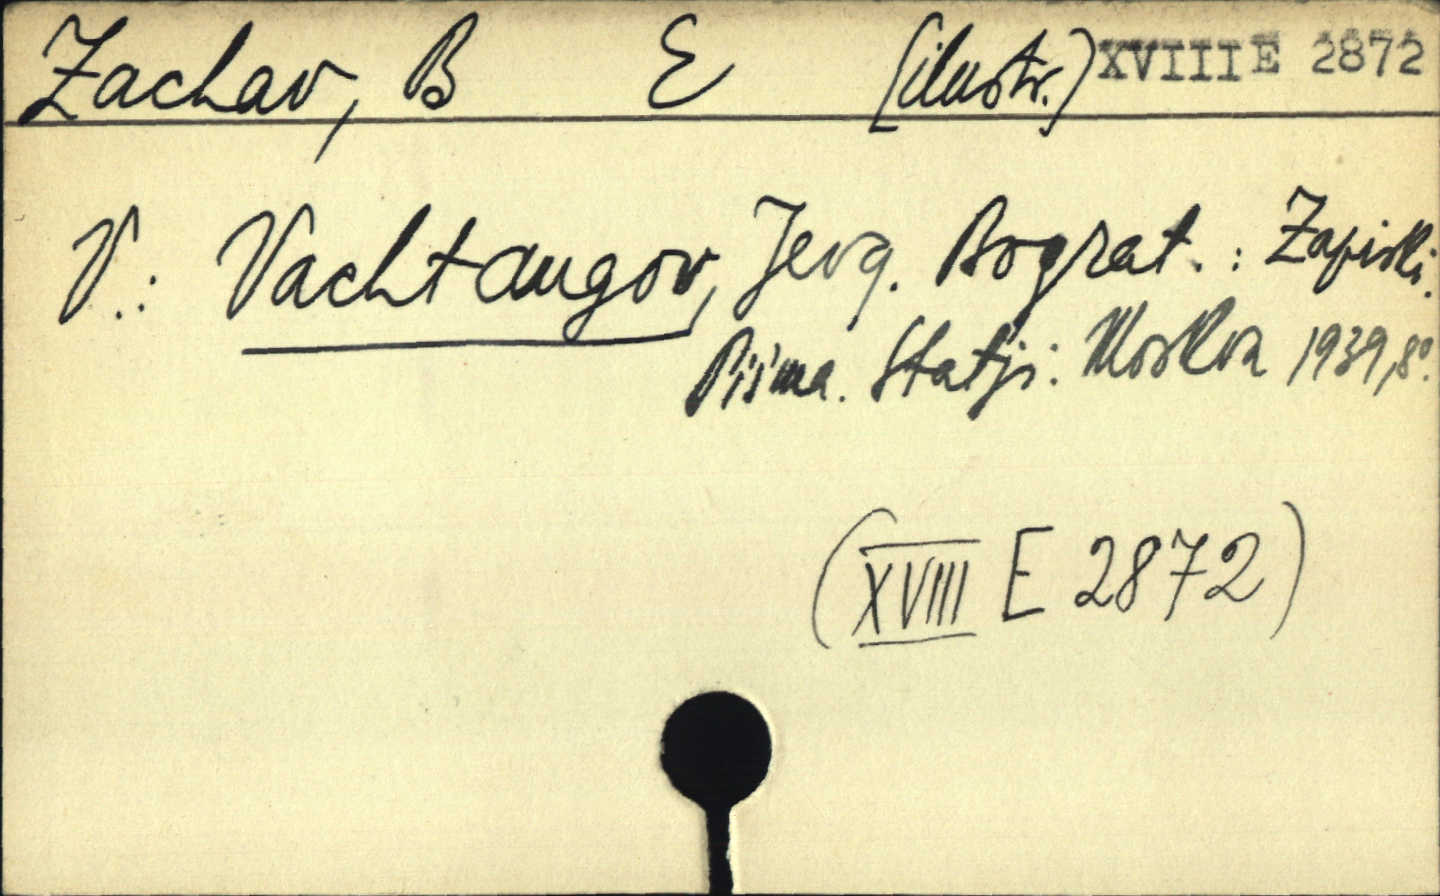 Zachav, B E [ilustr.) XVIII E 2872
V.: Vachtangov, Jevg. Bograt.: Zapiski.
Piśma. Statji. Moskva 1939, 8°.
(XVIII E 2872)